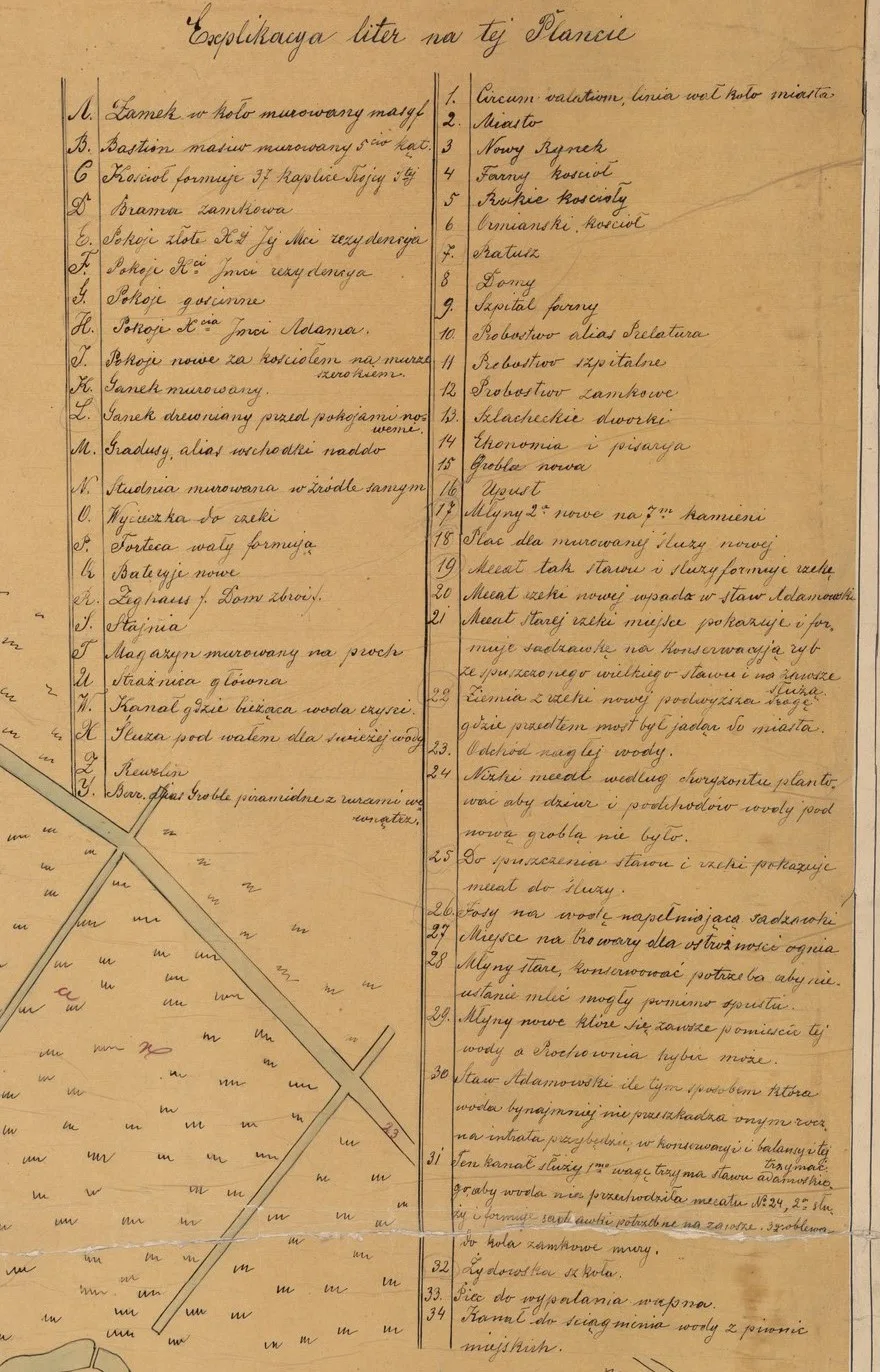 Explikacya liter na tej Plancie
A. Zamek w koło murowany masyf
B. Bastion masiw murowany 5cio kąt.
C Kościoł formuje 37 kaplice Trójcy Stej
D Brama zamkowa
E. Pokoje złote XD Jej Mci rezydencyja
F. Pokoje Xci Jmci rezydencya
G. Pokoje goscinne
H. Pokoje Xcia Jmci Adama.
I. Pokoje nowe za kosciołem na murze
szerokiem.
K. Ganek murowany.
L. Ganek drewniany przed pokojami no-
wemi.
M. Gradusy, alias wschodki naddo
N. Studnia murowana w źródle samym
O. Wycieczka do rzeki
P. Forteca wały formują
Q Bateryje nowe
R. Zeghaus f. Dom zbroi f.
S. Stajnia
T Magazyn murowany na proch
U Straźnica główna
W. Kanał gdzie bieżąca woda czyści.
X Śluza pod wałem dla swieżej wody
Z Rewelin
Y. alias Groble piramidne z rurami we
wnątrz.
1. Circum valatiom, linia wał koło miasta
2. Miasto
3 Nowy Rynek
4 Farny kościoł
5 Ruskie kościoły
6 Ormianski, kościoł
7. Ratusz
8 Domy
9. Szpital farny
10. Probostwo alias Prelatura
11 Probostwo szpitalne
12 Probostwo zamkowe
13. Szlacheckie dworki
14 Ekonomia i pisarya
15 Grobla nowa
16 Upust
17 Młyny 2a nowe na 7m kamieni
18 Plac dla murowanej śluzy nowej
19 Mecat tak stawu i sluzy formuje rzekę
20 Mecat rzeki nowej wpada w staw Adamowski
21 Mecat starej rzeki miejsce pokazuje i for-
muje sadzawkę na konserwacyją ryb
ze spuszczonego wielkiego stawu i na zawsze
służą.
22 Ziemia z rzeki nowej podwyższa drogę
gdzie przedtem most był jadąc do miasta.
23. Odchod nagłej wody.
24 Nizki mecat według Horyzontu planto-
wać aby dziur i podchodów wody pod
nową groblą nie było.
25 Do spuszczenia stawu i rzeki pokazuje
mecat do śluzy.
26 Fosy na wodę napełniającą sadzawki
27 Miejsce na browary dla ostróżnosci ognia
28 Młyny stare, konserwować potrzeba aby nie-
ustanie mleć mogły pomimo spustu.
29. Młyny nowe które się zawsze pomieścić tej
wody a Prochownia hybić moze.
30 Staw Adamowski ile tym sposobem która
woda bynajmniej nie przeszkadza onym rocz-
na intrata przybędzie, w konserwacyi i balansy i tej
trzymać.
31 Ten kanał służy 1mo wagę trzyma stawu adamoskie-
go, aby woda nie przechodziła mecatu No 24, 2o słu-
ży i formuje sadzawki potrzebne na zawsze. 3o oblewa
do koła zamkowe mury.
32 Żydowska szkoła.
33. Piec do wypalania wapna.
34 Kanał do sciągnienia wody z piwnic
miejskich.
23